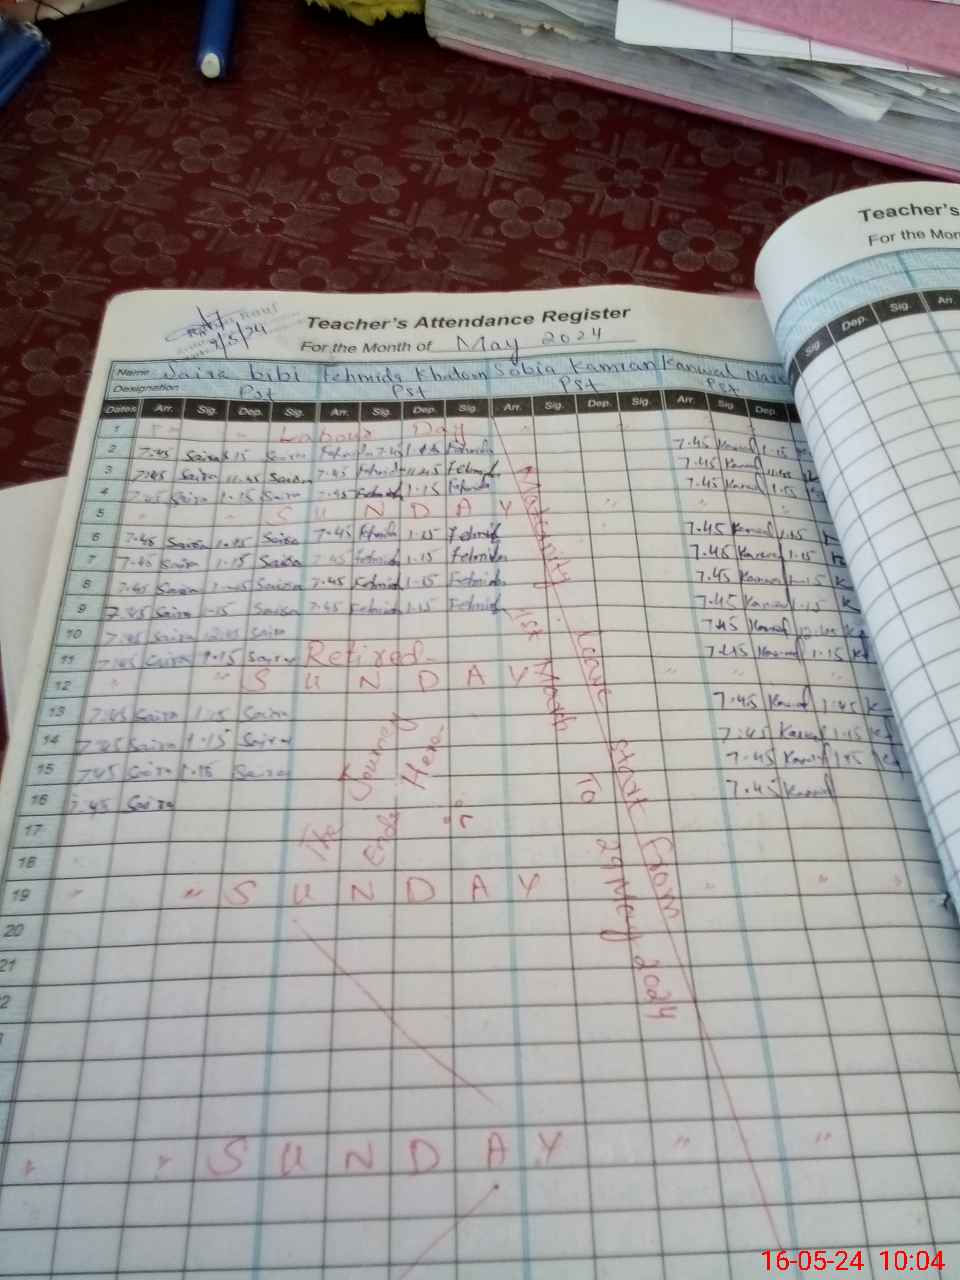 Teacher's
For the Mon
Sig. Dep. Sig. Arr.
9/5/24
Teacher's Attendance Register
For the Month of May 2024
Name Saira bibi Fehmida Khatoon Sobia Kamran Kanwal
Designation Pst Pst Pst Pst
Dates Arr. Sig. Dep. Sig. Arr. Sig. Dep. Sig. Arr. Sig. Dep. Sig. Arr. Sig. Dep.
1 " " Labour Day
2 7.45 Saira 1.15 Saira 7.45 Fehmida 7.45 Kanwal 1.15
3 7.45 Saira 11.45 Saira 7.45 Fehmid 11.45 Fehmid 7.45 Kanwal
4 7.45 Saira 1.15 Saira 7.45 Fehmid 1.15 Fehmida 7.45 Kanwal 1.15
5 " " S U N D A Y " "
6 7.45 Saira 1.15 Saira 7.45 Fehmida 1.15 Fehmid 7.45 Kanwal 1.15
7 7.45 Saira 1.15 Saira 7.45 Fehmid 1.15 Fehmida 7.45 Kanwal 1.15
8 7.45 Saira 1.15 Saira 7.45 Fehmid 1.15 Fehmida 7.45 Kanwal 1.15 K
9 7.45 Saira 1.15 Saira 7.45 Fehmid 1.15 Fehmid 7.45 Kanwal 1.15 K
10 7.45 Saira 12.45 Saira 7.45 Kanwal 12.45
11 7.45 Saira 1.15 Saira Retired 7.45 Kanwal 1.15
12 " " S U N D A Y " "
13 7.45 Saira 1.15 Saira 7.45 Kanwal 1.45 K
14 7.45 Saira 1.15 Saira 7.45 Kanwal 1.15
15 7.45 Saira 1.15 Saira 7.45 Kanwal 1.15
16 7.45 Saira 7.45 Kanwal
17
18
19 " " S U N D A Y " " "
20
21
2
The Journey
Ends Here
Maternity Leave Start From
1st March To 29 May 2024
" " S U N D A Y " "
16-05-24 10:04